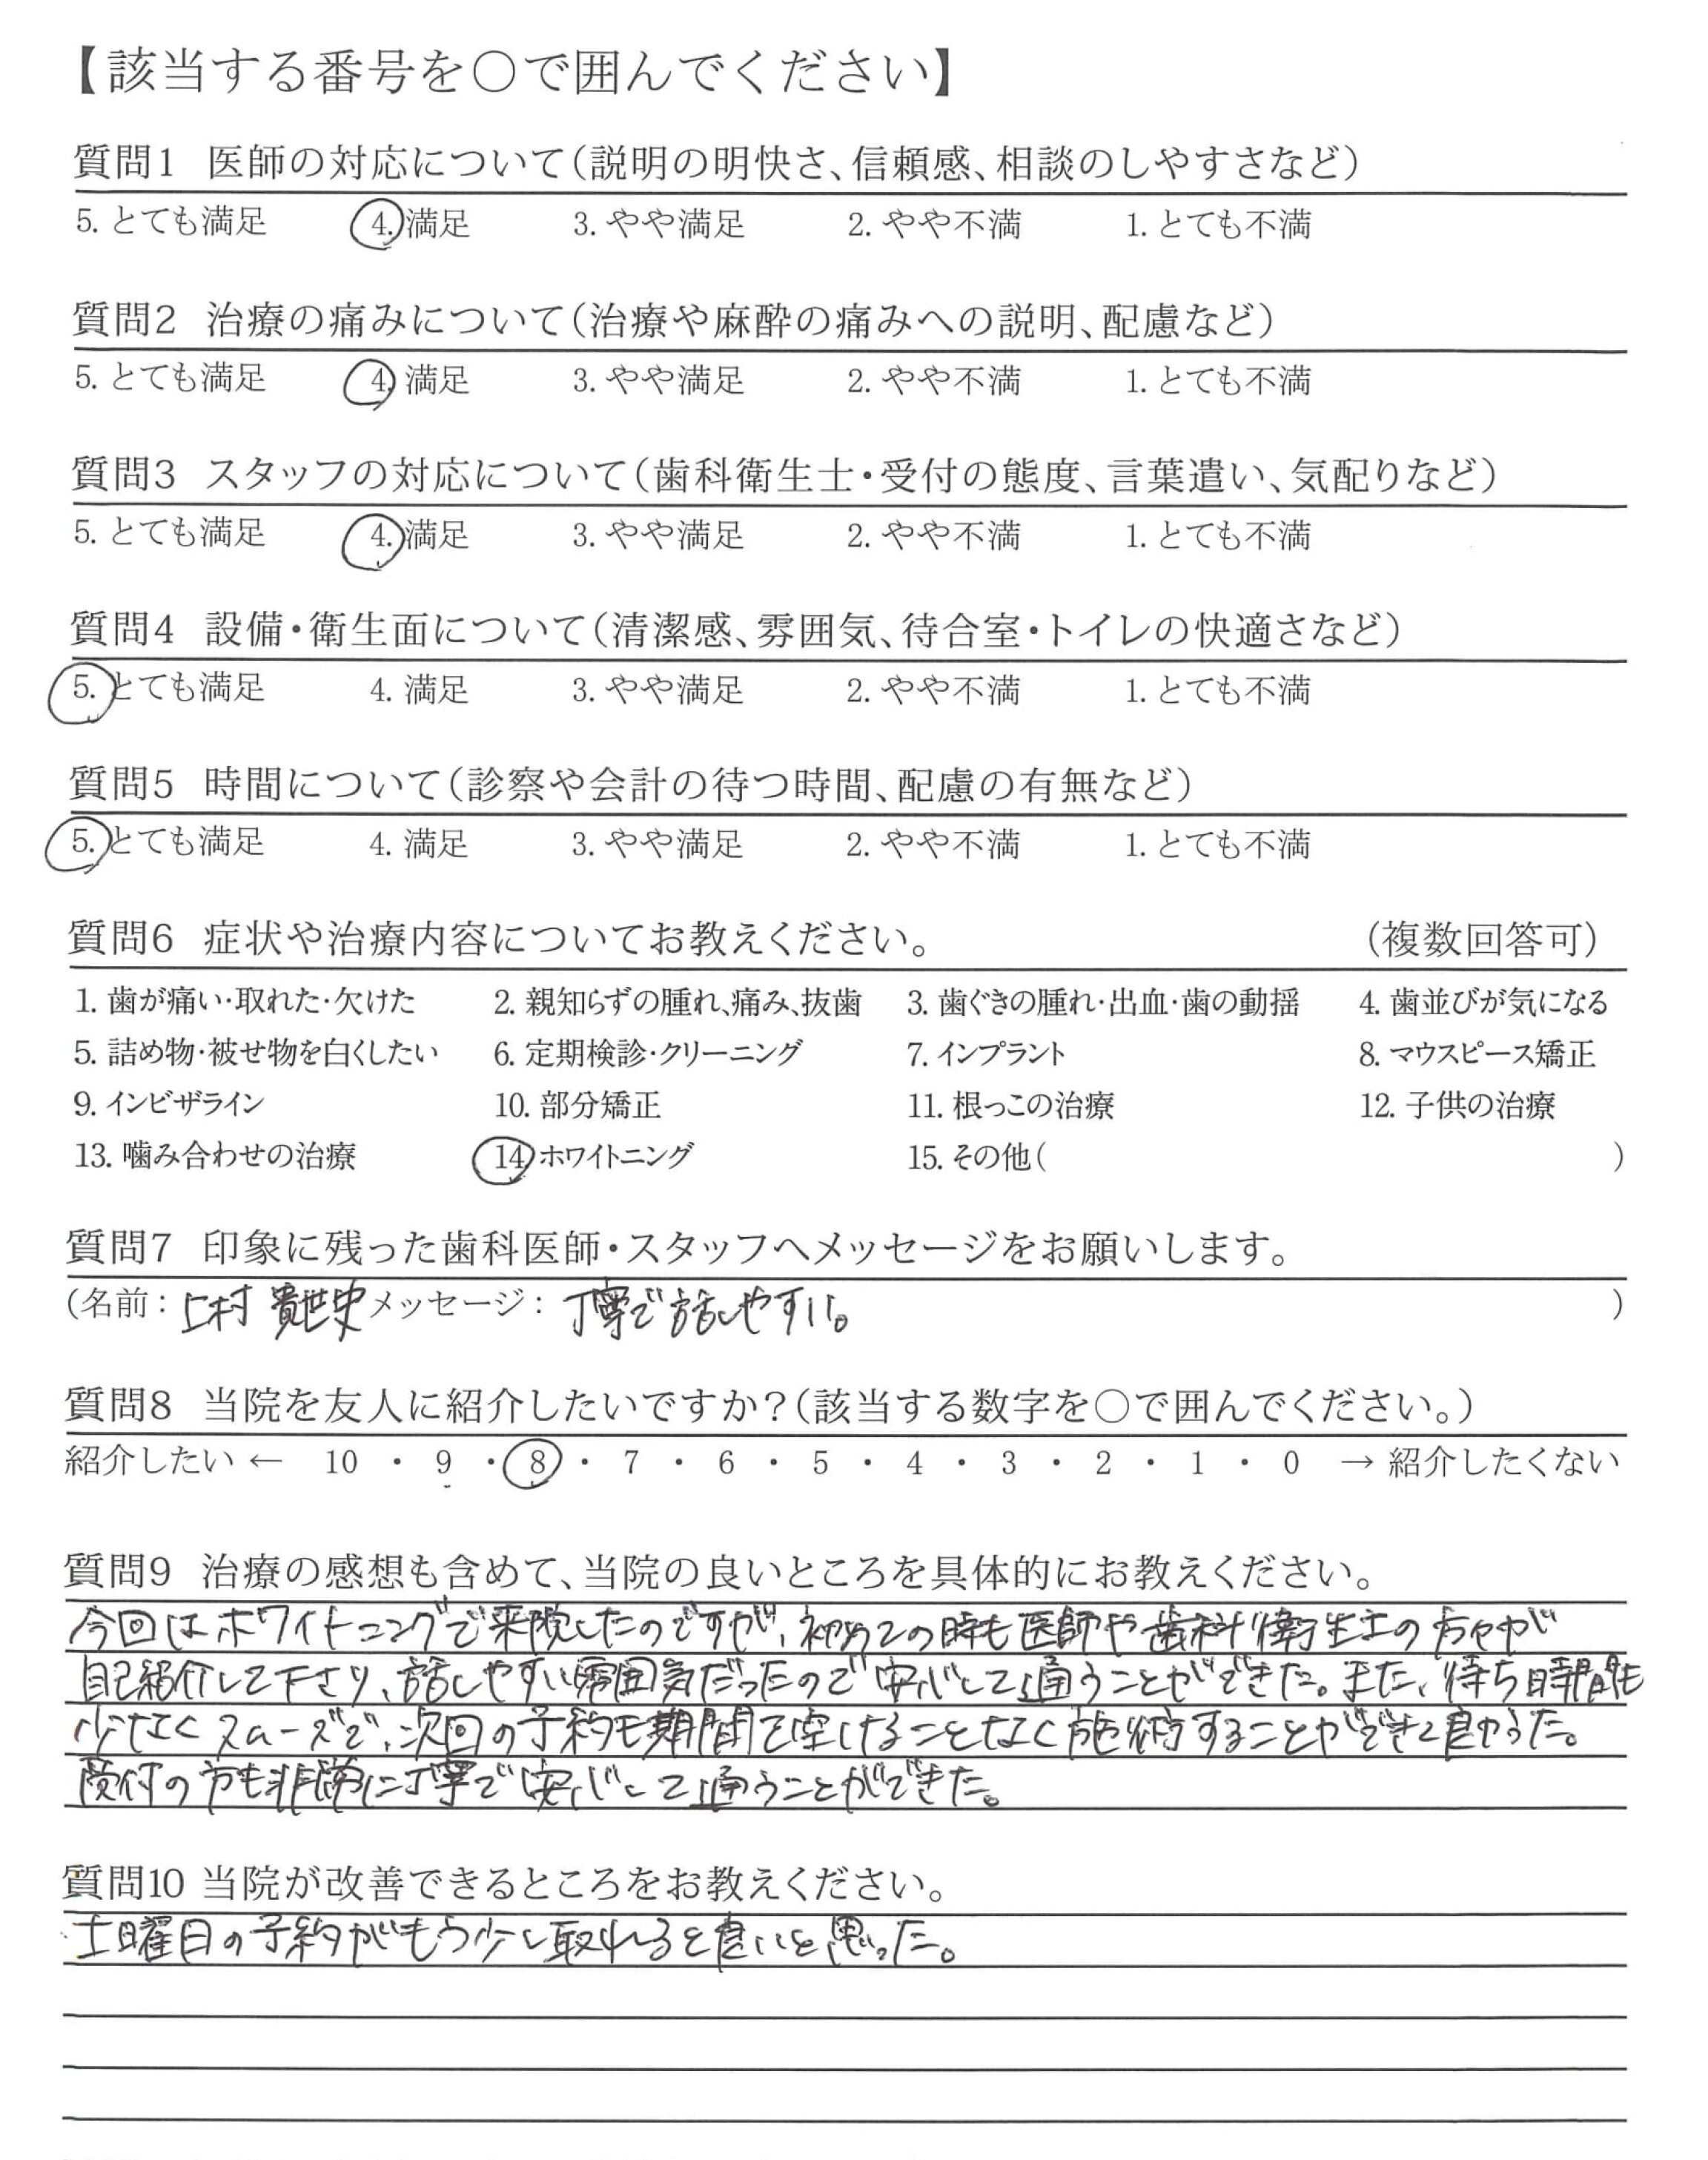 【該当する番号を○で囲んでください】
質問1 医師の対応について(説明の明快さ、信頼感、相談のしやすさなど)
5. とても満足 4. 満足 3. やや満足 2. やや不満 1. とても不満
質問2 治療の痛みについて(治療や麻酔の痛みへの説明、配慮など)
5. とても満足 4. 満足 3. やや満足 2. やや不満 1. とても不満
質問3 スタッフの対応について(歯科衛生士・受付の態度、言葉遣い、気配りなど)
5. とても満足 4. 満足 3. やや満足 2. やや不満 1. とても不満
質問4 設備・衛生面について(清潔感、雰囲気、待合室・トイレの快適さなど)
5. とても満足 4. 満足 3. やや満足 2. やや不満 1. とても不満
質問5 時間について(診察や会計の待つ時間、配慮の有無など)
5. とても満足 4. 満足 3. やや満足 2. やや不満 1. とても不満
質問6 症状や治療内容についてお教えください。 (複数回答可)
1. 歯が痛い・取れた・欠けた 2. 親知らずの腫れ、痛み、抜歯 3. 歯ぐきの腫れ・出血・歯の動揺 4. 歯並びが気になる
5. 詰め物・被せ物を白くしたい 6. 定期検診・クリーニング 7. インプラント 8. マウスピース矯正
9. インビザライン 10. 部分矯正 11. 根っこの治療 12. 子供の治療
13. 噛み合わせの治療 14. ホワイトニング 15. その他( )
質問7 印象に残った歯科医師・スタッフへメッセージをお願いします。
(名前: 上村 貴世史 メッセージ: 丁寧で話しやすい。 )
質問8 当院を友人に紹介したいですか?(該当する数字を○で囲んでください。)
紹介したい ← 10 ・ 9 ・ 8 ・ 7 ・ 6 ・ 5 ・ 4 ・ 3 ・ 2 ・ 1 ・ 0 → 紹介したくない
質問9 治療の感想も含めて、当院の良いところを具体的にお教えください。
今回はホワイトニングで来院したのですが、初めての時も医師や歯科衛生士の方々が
自己紹介して下さり、話しやすい雰囲気だったので安心して通うことができた。また、待ち時間も
少なくスムーズで、次回の予約も期間を空けることなく施術することができて良かった。
受付の方も非常に丁寧で安心して通うことができた。
質問10 当院が改善できるところをお教えください。
土曜日の予約がもう少し取れると良いと思った。